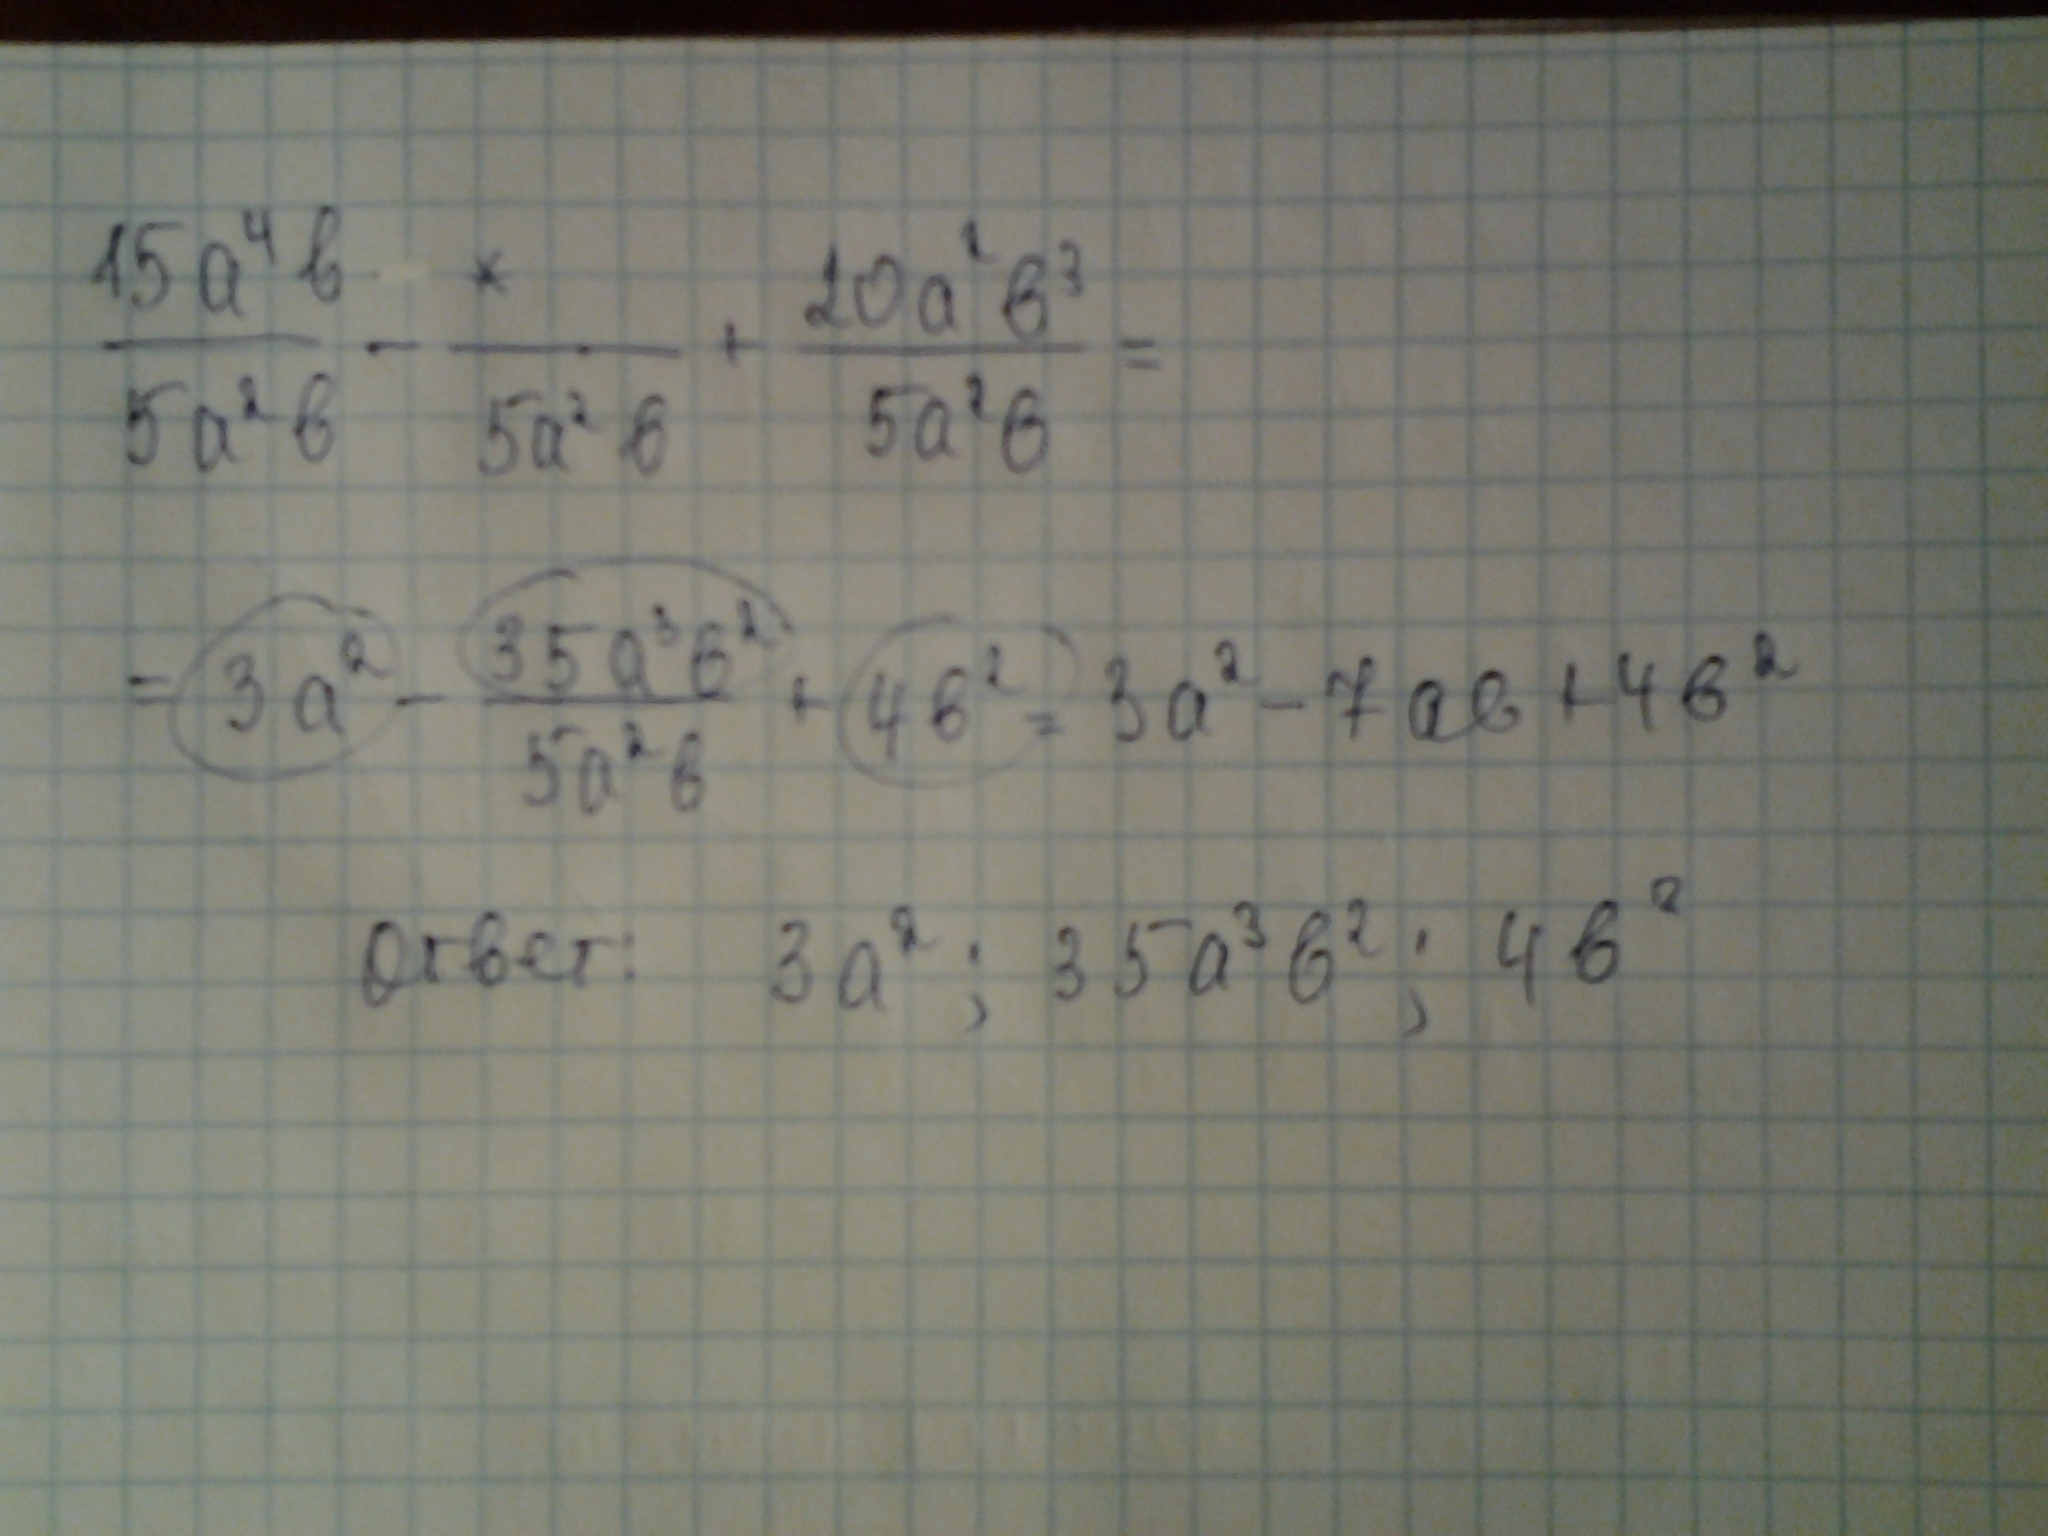 15a⁴b/5a²b - */5a²b + 20a²b³/5a²b =
= 3a² - 35a³b²/5a²b + 4b² = 3a² - 7ab + 4b²
Ответ: 3a²; 35a³b²; 4b²